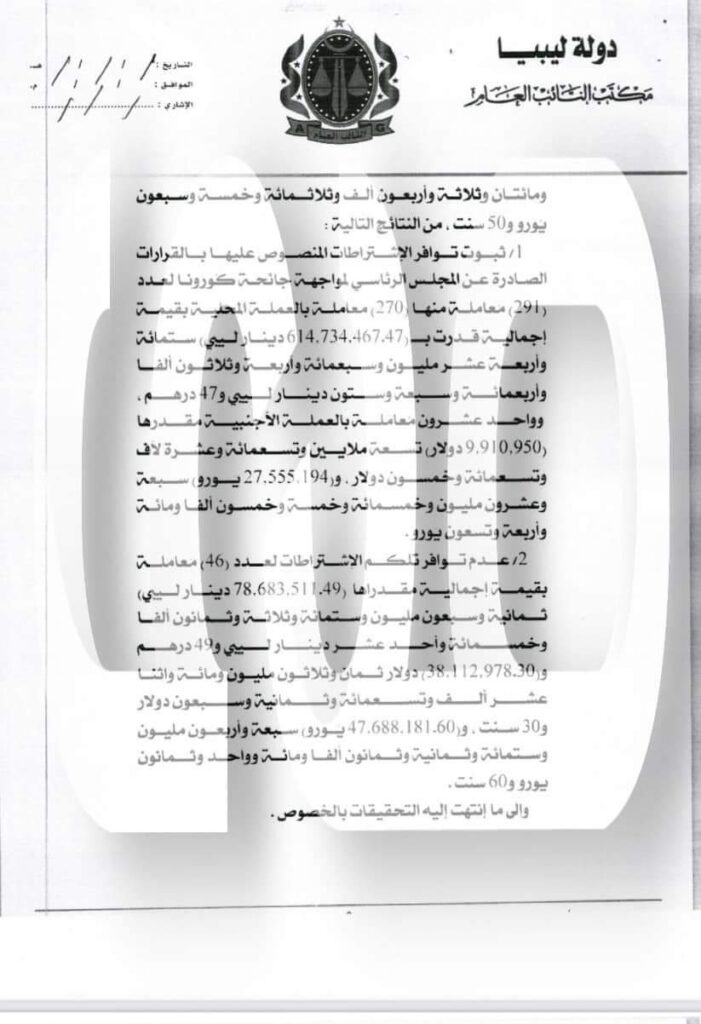 دولة ليبيا
مكتب النائب العام
التاريخ : / / هـ
الموافق : / / م.
الإشاري :
A G
النائب العام
ومائتان وثلاثة وأربعون ألف وثلاثمائة وخمسة وسبعون
يورو و50 سنت ، من النتائج التالية :
1/ ثبوت توافر الإشتراطات المنصوص عليها بالقرارات
الصادرة عن المجلس الرئاسي لمواجهة جائحة كورونا لعدد
(291) معاملة منها (270) معاملة بالعملة المحلية بقيمة
إجمالية قدرت بـ (614.734.467.47 دينار ليبي) ستمائة
وأربعة عشر مليون وسبعمائة واربعة وثلاثون ألفا
وأربعمائة وسبعة وستون دينار ليبي و47 درهم ،
وواحد عشرون معاملة بالعملة الأجنبية مقدرها
(9.910,950 دولار) تسعة ملايين وتسعمائة وعشرة لأف
وتسعمائة وخمسون دولار ، و(27.555.194 يورو) سبعة
وعشرون مليون وخمسمائة وخمسة وخمسون ألفا ومائة
وأربعة وتسعون يورو .
2/ عدم توافر تلكم الإشتراطات لعدد (46) معاملة
بقيمة إجمالية مقدراها (78.683.511.49 دينار ليبي)
ثمانية وسبعون مليون وستمائة وثلاثة وثمانون ألفا
وخمسمائة وأحد عشر دينار ليبي و49 درهم
و(38.112,978.30) دولار ثمان وثلاثون مليون ومائة واثنا
عشر ألف وتسعمائة وثمانية وسبعون دولار
و30 سنت ، و(47.688.181.60 يورو) سبعة وأربعون مليون
وستمائة وثمانية وثمانون ألفا ومائة وواحد وثمانون
يورو و60 سنت .
والى ما إنتهت إليه التحقيقات بالخصوص .